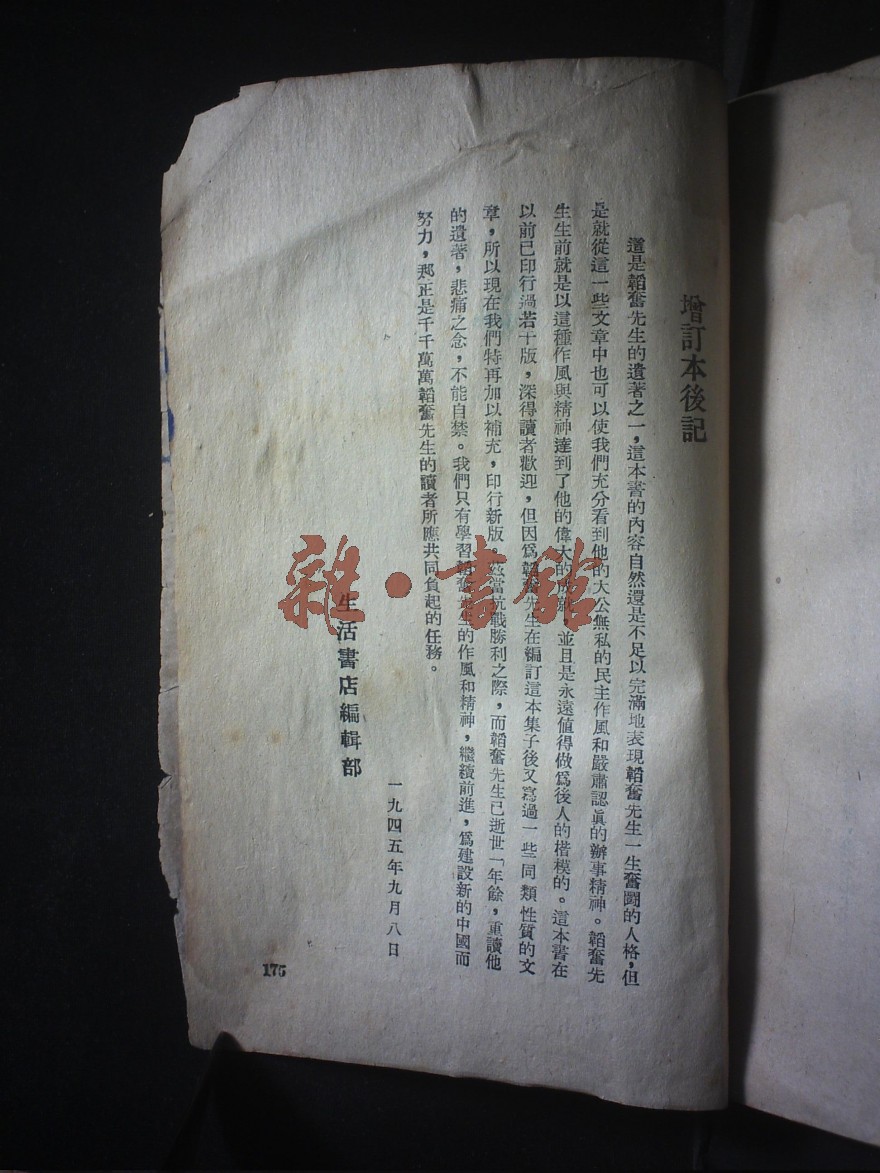 增訂本後記
這是韜奮先生的遺著之一，這本書的內容自然還是不足以完滿地表現韜奮先生一生奮鬪的人格，但
是就從這一些文章中也可以使我們充分看到他的大公無私的民主作風和嚴肅認眞的辦事精神。韜奮先
生生前就是以這種作風與精神達到了他的偉大的成就，並且是永遠値得做爲後人的楷模的。這本書在
以前已印行過若干版，深得讀者歡迎，但因爲韜奮先生在編訂這本集子後又寫過一些同類性質的文
章，所以現在我們特再加以補充，印行新版。茲當抗戰勝利之際，而韜奮先生已逝世一年餘，重讀他
的遺著，悲痛之念，不能自禁。我們只有學習韜奮先生的作風和精神，繼續前進，爲建設新的中國而
努力，那正是千千萬萬韜奮先生的讀者所應共同負起的任務。
生活書店編輯部
一九四五年九月八日
175
雜·書館